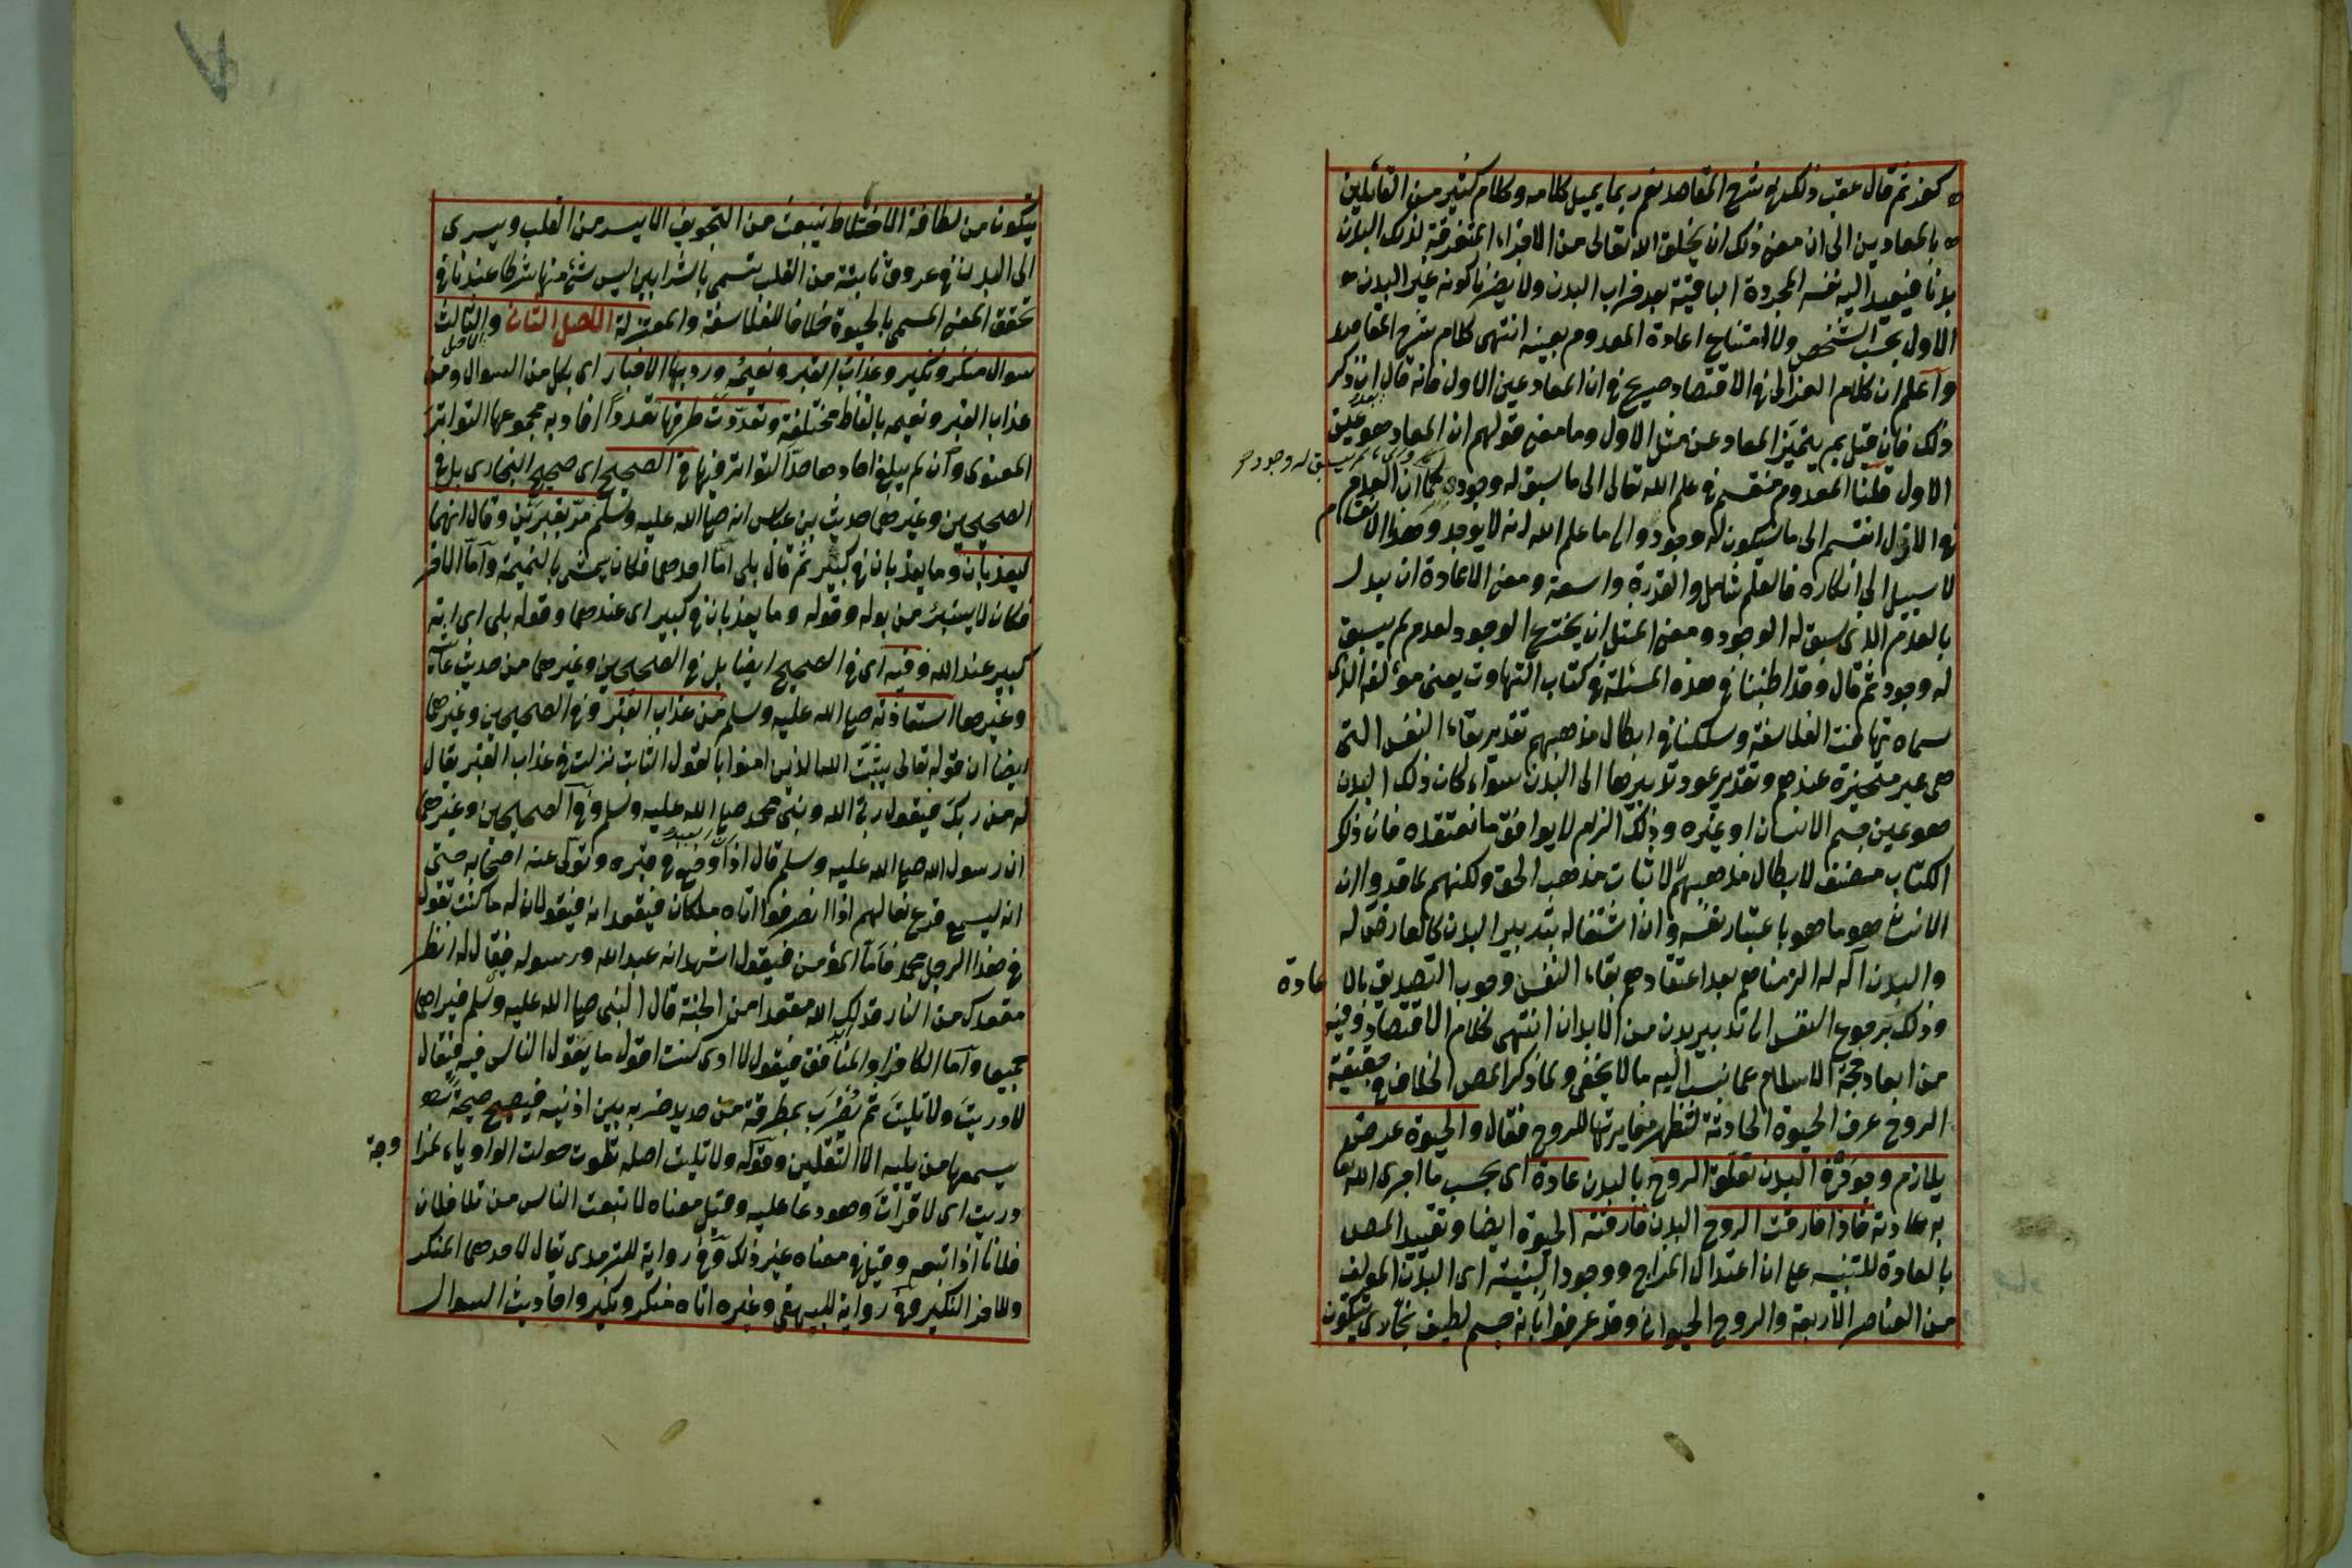 كفر ثم قال عقب ذلك في شرح المقاصد نعم ربما يميل كلامه وكلام كثير من القائلين
بالمعادين الى ان معنى ذلك ان يخلق الله تعالى من الاجزاء المتفرقة لذلك البدن
بدنا فيعيد اليه نفسه المجردة الباقية بعد خراب البدن ولا يضرنا كونه غير البدن
الاول بحسب الشخص ولا امتناع اعادة المعدوم بعينه انتهى كلام شرح المقاصد
واعلم ان كلام الغزالى في الاقتصاد صريح في ان المعاد عين الاول فانه قال بعد ان ذكر
ذلك فان قيل بم يتميز المعاد عن مثل الاول وما معنى قولهم ان المعاد هو عين
الاول قلنا المعدوم منقسم في علم الله تعالى الى ما سبق له وجود والى ما لم يسبق له وجود كما ان العدم
في الازل انقسم الى ما سيكون له وجود والى ما علم الله انه لا يوجد وهذا الانقسام
لا سبيل الى انكاره فالعلم شامل والقدرة واسعة ومعنى الاعادة ان يبدل
بالعدم الذى سبق له الوجود ومعنى المثل ان يخترع الوجود لعدم لم يسبق
له وجود ثم قال وقد اطنبنا في هذه المسئلة في كتاب التهاوت يعنى مؤلفه الذى
سماه تهافت الفلاسفة وسلكنا في ابطال مذهبهم تقدير بقاء النفس التى
هى غير متحيزة عندهم وتقدير عود تدبيرها الى البدن سواء كان ذلك البدن
هو عين جسم الانسان او غيره وذلك الزام لا يوافق ما نعتقده فان ذلك
الكتاب مصنف لابطال مذهبهم لا لاثبات مذهب الحق ولكنهم لما قدروا ان
الانسان هو ما هو باعتبار نفسه وان اشتغاله بتدبير البدن كالعارض له
والبدن آلة له الزمناهم بعد اعتقادهم بقاء النفس وجوب التصديق بالاعادة
وذلك برجوع النفس الى تدبير بدن من الابدان انتهى كلام الاقتصاد وفيه
من ابعاد حجة الاسلام عما نسب اليه ما لا يخفى ولما ذكر المص الخلاف في حقيقة
الروح عرف الحيوة الحادثة لتظهر مغايرتها للروح فقال والحيوة عرض
يلازم وجوده البدن تعلق الروح بالبدن عادة اى بحسب ما اجرى الله تعا
به عادته فاذا فارقت الروح البدن فارقته الحيوة ايضا وتقييد المص
بالعادة للتنبيه على ان اعتدال المزاج ووجود البنية اى البدن المؤلف
من العناصر الاربعة والروح الحيوانى وقد عرفوا بانه جسم لطيف بخارى يتكون
يتكون من لطافة الاخلاط ينبعث من التجويف الايسر من القلب ويسرى
الى البدن في عروق نابتة من القلب تسمى بالشرايين ليس شئ منها شرطا عندنا في
تحقق المعنى المسمى بالحيوة خلافا للفلاسفة والمعتزلة الاصل الثانى والاصل الثالث
سوال منكر ونكير وعذاب القبر ونعيمه ورد بها الاخبار اى بكل من السوال ومن
عذاب القبر ونعيمه بالفاظ مختلفة وتعددت طرقها تعددا افاد به مجموعها التواتر
المعنوى وان لم يبلغ احادها حد التواتر فمنها في الصحيح اى صحيح البخارى بل في
الصحيحين وغيرهما حديث بن عباس انه صلى الله عليه وسلم مر بقبرين وقال انهما
ليعذبان وما يعذبان في كبير ثم قال بلى اما احدهما فكان يمشى بالنميمة واما الاخر
فكان لا يستبرئ من بوله وقوله وما يعذبان في كبير اى عندهما وقوله بلى اى انه
كبير عند الله وفيه اى في الصحيح ايضا بل في الصحيحين وغيرهما من حديث عائشة
وغيرها استعاذته صلى الله عليه وسلم من عذاب القبر وفي الصحيحين وغيرهما
ايضا ان قوله تعالى يثبت الله الذين امنوا بالقول الثابت نزلت في عذاب القبر يقال
له من ربك فيقول ربى الله ونبيى محمد صلى الله عليه وسلم وفي الصحيحين وغيرهما
ان رسول الله صلى الله عليه وسلم قال ان العبد اذا وضع في قبره وتولى عنه اصحابه حتى
انه ليسمع قرع نعالهم اذا انصرفوا اتاه ملكان فيقعدانه فيقولان له ما كنت تقول
في هذا الرجل محمد فاما المؤمن فيقول اشهد انه عبد الله ورسوله فيقال له انظر
مقعدك من النار قد ابدلك الله مقعدا من الجنة قال النبى صلى الله عليه وسلم فيراهما
جميعا واما الكافر او المنافق فيقول لا ادرى كنت اقول ما يقول الناس فيه فيقال
لا دريت ولا تليت ثم يضرب بمطرقة من حديد ضربة بين اذنيه فيصيح صيحة
يسمعها من يليه الا الثقلين وقوله ولا تليت اصله تلوت حولت الواو ياء لمزاوجة
دريت اى لا قرات وهو دعا عليه وقيل معناه لا تبعت الناس من تلا فلان
فلانا اذا تبعه وقيل في معناه غير ذلك وفي رواية للترمذى يقال لاحدهما المنكر
وللاخر النكير وفي رواية للبيهقى وغيره اتاه منكر ونكير واحاديث السوال